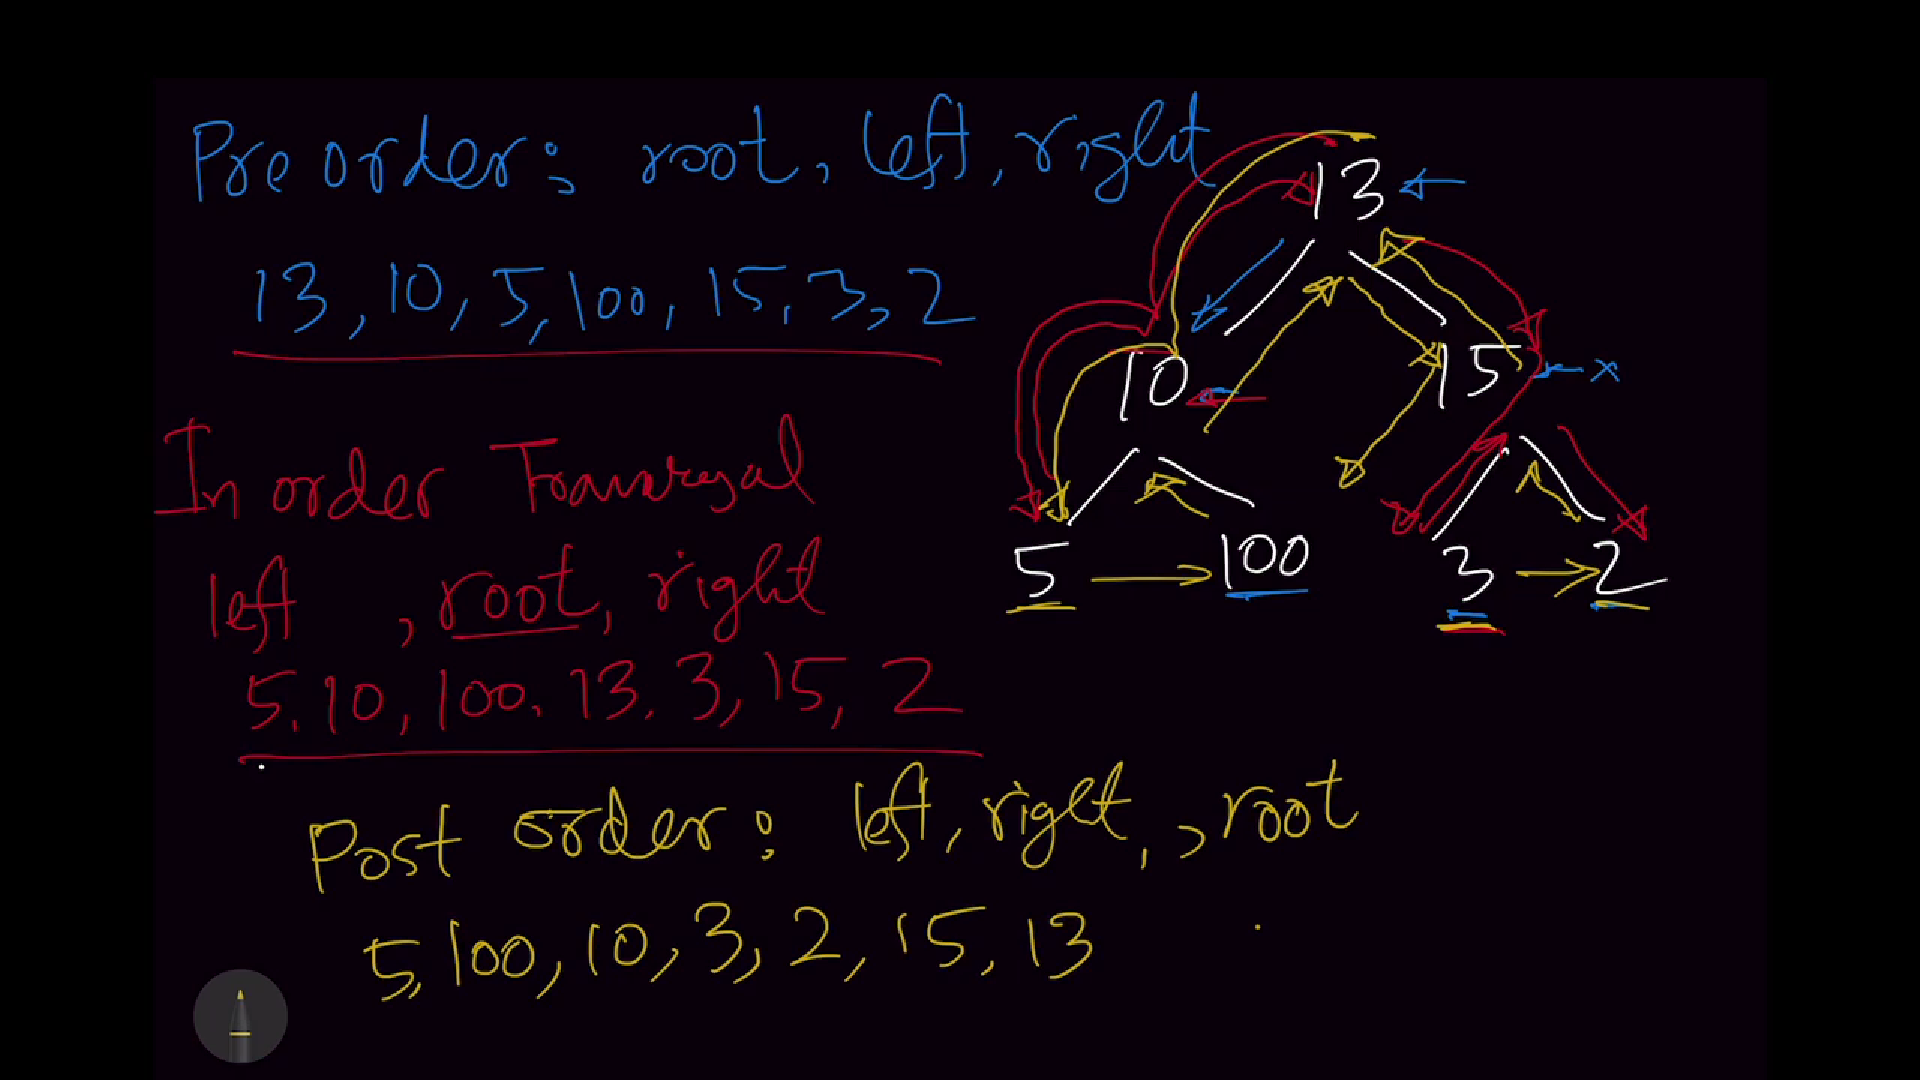 Pre order: root, left, right
13, 10, 5, 100, 15, 3, 2
In order
left, root, right
5, 10, 100, 13, 3, 15, 2
Post order: left, right, , root
5, 100, 10, 3, 2, 15, 13
13
10 15 x
5 100 3 2